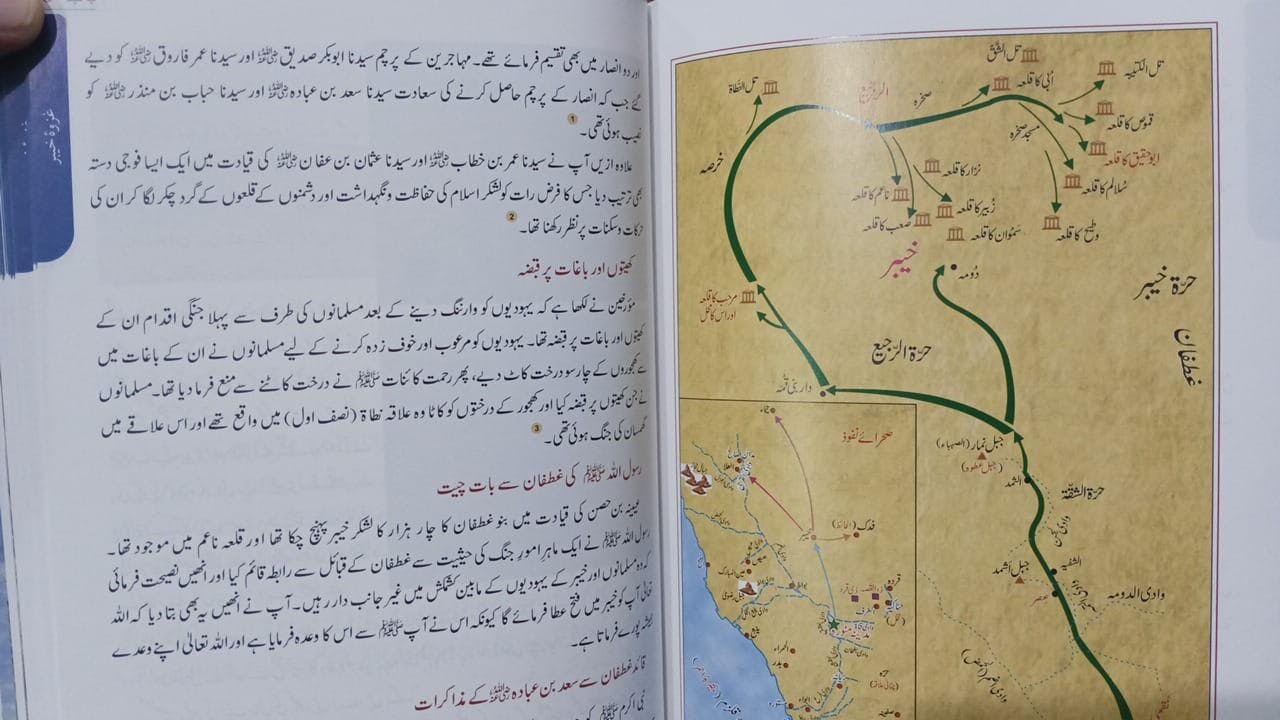 غزوۂ خیبر
اور دو انصار میں بھی تقسیم فرمائے تھے۔ مہاجرین کے پرچم سیدنا ابوبکر صدیق ﷜ اور سیدنا عمر فاروق ﷜ کو دیے
گئے جب کہ انصار کے پرچم حاصل کرنے کی سعادت سیدنا سعد بن عبادہ ﷜ اور سیدنا حباب بن منذر ﷜ کو
نصیب ہوئی تھی۔ 1
علاوہ ازیں آپ نے سیدنا عمر بن خطاب ﷜ اور سیدنا عثمان بن عفان ﷜ کی قیادت میں ایک ایسا فوجی دستہ
بھی ترتیب دیا جس کا فرض رات کو لشکر اسلام کی حفاظت و نگہداشت اور دشمنوں کے قلعوں کے گرد چکر لگا کر ان کی
حرکات و سکنات پر نظر رکھنا تھا۔ 2
کھیتوں اور باغات پر قبضہ
مؤرخین نے لکھا ہے کہ یہودیوں کو وارننگ دینے کے بعد مسلمانوں کی طرف سے پہلا جنگی اقدام ان کے
کھیتوں اور باغات پر قبضہ تھا۔ یہودیوں کو مرعوب اور خوف زدہ کرنے کے لیے مسلمانوں نے ان کے باغات میں
سے کھجوروں کے چار سو درخت کاٹ دیے، پھر رحمت کائنات ﷺ نے درخت کاٹنے سے منع فرما دیا تھا۔ مسلمانوں
نے جن کھیتوں پر قبضہ کیا اور کھجور کے درختوں کو کاٹا وہ علاقہ نطاة (نصف اول) میں واقع تھے اور اس علاقے میں
گھمسان کی جنگ ہوئی تھی۔ 3
رسول اللہ ﷺ کی غطفان سے بات چیت
عیینہ بن حصن کی قیادت میں بنو غطفان کا چار ہزار کا لشکر خیبر پہنچ چکا تھا اور قلعہ ناعم میں موجود تھا۔
رسول اللہ ﷺ نے ایک ماہر امور جنگ کی حیثیت سے غطفان کے قبائل سے رابطہ قائم کیا اور انھیں نصیحت فرمائی
کہ وہ مسلمانوں اور خیبر کے یہودیوں کے مابین کشمکش میں غیر جانب دار رہیں۔ آپ نے انھیں یہ بھی بتا دیا کہ اللہ
تعالیٰ آپ کو خیبر میں فتح عطا فرمائے گا کیونکہ اس نے آپ ﷺ سے اس کا وعدہ فرمایا ہے اور اللہ تعالیٰ اپنے وعدے
ہمیشہ پورے فرماتا ہے۔
قائد غطفان سے سعد بن عبادہ ﷜ کے مذاکرات
نبی اکرم ﷺ کو
تل الشق
اُبی کا قلعہ
تل الکتیبہ
تل النطاة
الرجیع
صخرہ
مسجد صخرہ
قموص کا قلعہ
ابو حقیق کا قلعہ
سُلالم کا قلعہ
وطیح کا قلعہ
نزار کا قلعہ
ناعم کا قلعہ
زُبیر کا قلعہ
صعب کا قلعہ
سموان کا قلعہ
خرصہ
خیبر
دُومہ
حرّة خیبر
غطفان
مرحب کا قلعہ
اور اس کا محل
حرّة الرّجیع
دار بنی قمّہ
جبل نمار (الصہباء)
(جبل عطوہ)
الثمد
حرّة الشقّة
الشفیہ
جبل اشمذ
عصر
وادی الدومہ
صحرائے نفوذ
فدک (الحائط)
خیبر
الحمراء
بدر
ینبع
ابواء